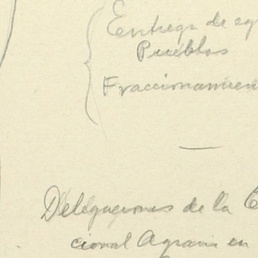 Entrega de
Pueblos
Fraccionamien
Delegaciones de la C
cional Agraria en